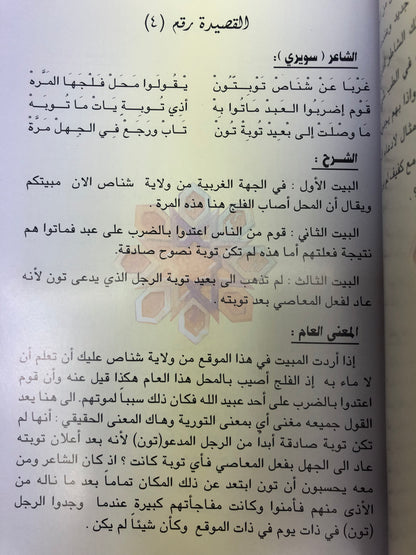 القصيدة رقم (٤)
الشاعر ( سويري ) :
غَرْبا عَنْ شْناص تَوبتُون يـقـولوا مَحَل فْلجْها المَرَّه
قَوم إضربُوا العبد ماتوا به أذي تُوبـة يات ما تُوبـه
ما وصلتْ إلى بعيد توبة تون تاب ورجَع في الجهل مَرَّة
الشرح :
البيت الأول : في الجهة الغربية من ولاية شناص الان مبيتكم
ويقال أن المحل أصاب الفلج هنا هذه المرة .
البيت الثاني : قوم من الناس اعتدوا بالضرب على عبد فماتوا هم
نتيجة فعلتهم أما هذه لم تكن توبة نصوح صادقة.
البيت الثالث : لم تذهب الى بعيد توبة الرجل الذي يدعى تون لأنه
عاد لفعل المعاصي بعد توبته .
المعنى العام :
إذا أردت المبيت في هذا الموقع من ولاية شناص عليك أن تعلم أن
لا ماء به إذ الفلج أصيب بالمحل هذا العام هكذا قيل عنه وأن قوم
اعتدوا بالضرب على أحد عبيد الله فكان ذلك سبباً لموتهم. الى هنا يعد
القول جميعه مغنى أي بمعنى التورية وهاك المعنى الحقيقي : أنها لم
تكن توبة صادقة أبدا من الرجل المدعو(تون) لأنه بعد أعلان توبته
عاد الى الجهل بفعل المعاصي فأي توبة كانت ؟ اذ كان الشاعر ومن
معه يحسبون أن تون ابتعد عن ذلك المكان تماماً بعد ما ناله من
الأذى منهم فأمنوا وكانت مفاجأتهم كبيرة عندما وجدوا الرجل
(تون) في ذات يوم في ذات الموقع وكأن شيئاً لم يكن .